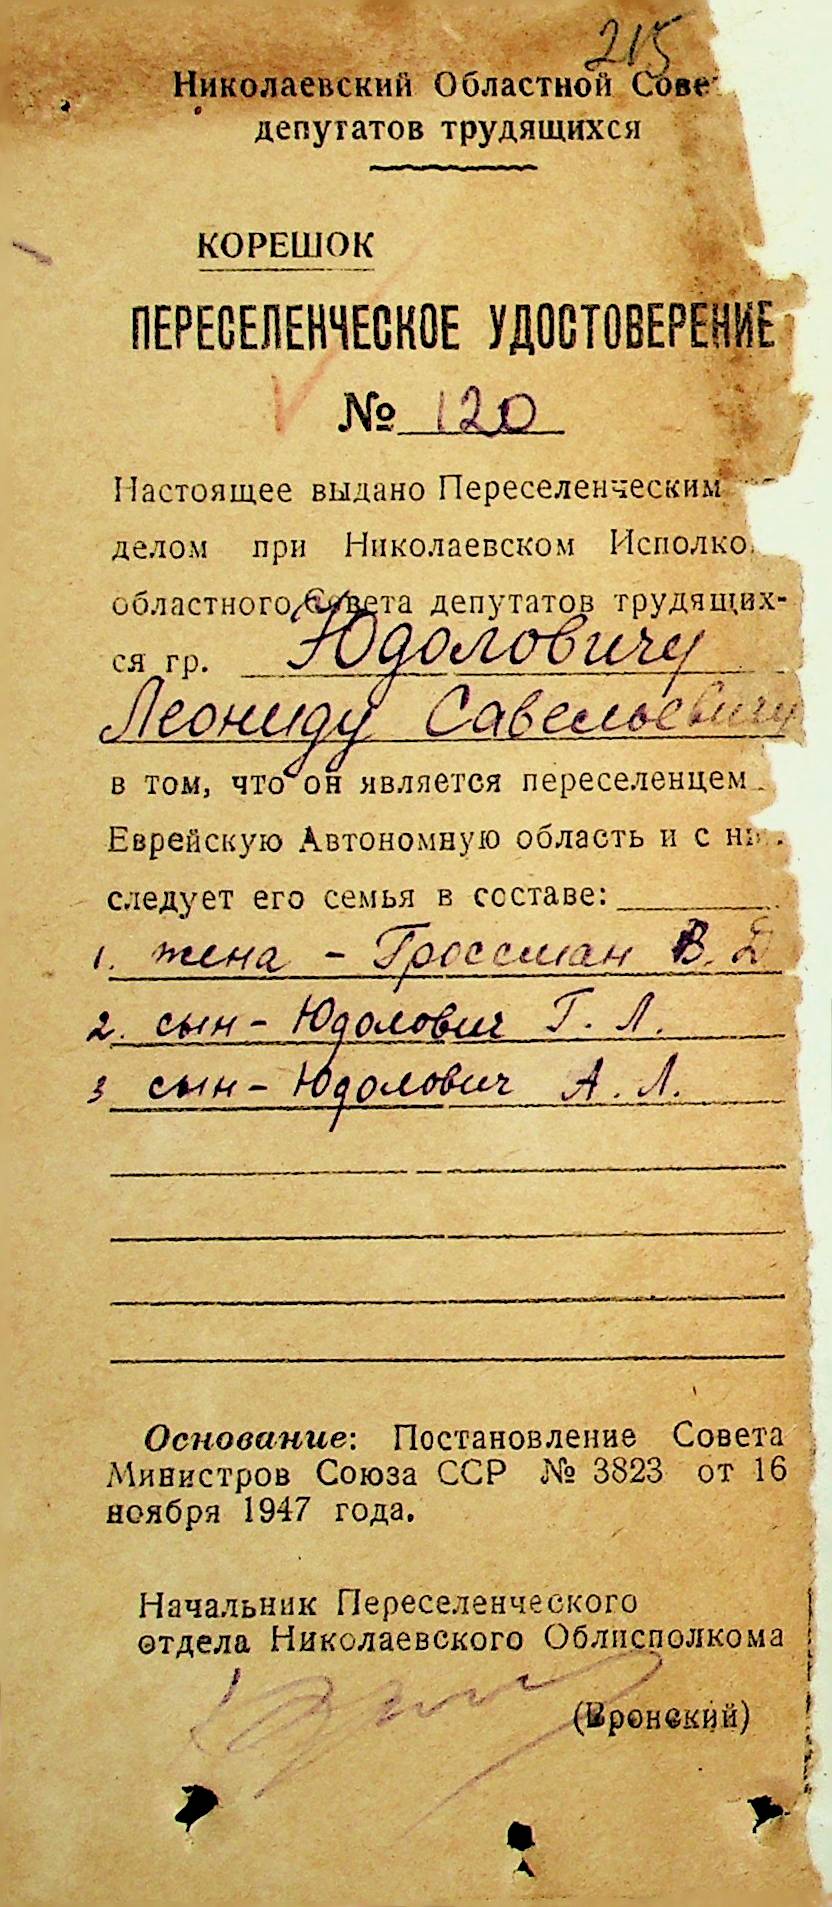 215
Николаевский Областной Сове
депутатов трудящихся
КОРЕШОК
ПЕРЕСЕЛЕНЧЕСКОЕ УДОСТОВЕРЕНИЕ
№ 120
Настоящее выдано Переселенческим
делом при Николаевском Исполко
областного Совета депутатов трудящих-
ся гр. Юдоловичу
Леониду Савельевичу
в том, что он является переселенцем
Еврейскую Автономную область и с ни
следует его семья в составе:
1. жена - Гроссман В. Д
2. сын - Юдолович Г. Л.
3 сын - Юдолович А. Л.
Основание: Постановление Совета
Министров Союза ССР № 3823 от 16
ноября 1947 года.
Начальник Переселенческого
отдела Николаевского Облисполкома
(Вронский)